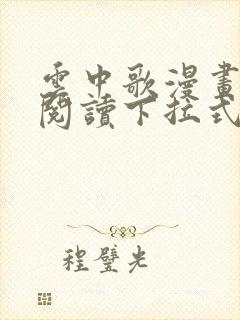 雲中歌漫畫
閱讀下拉式
程璧光